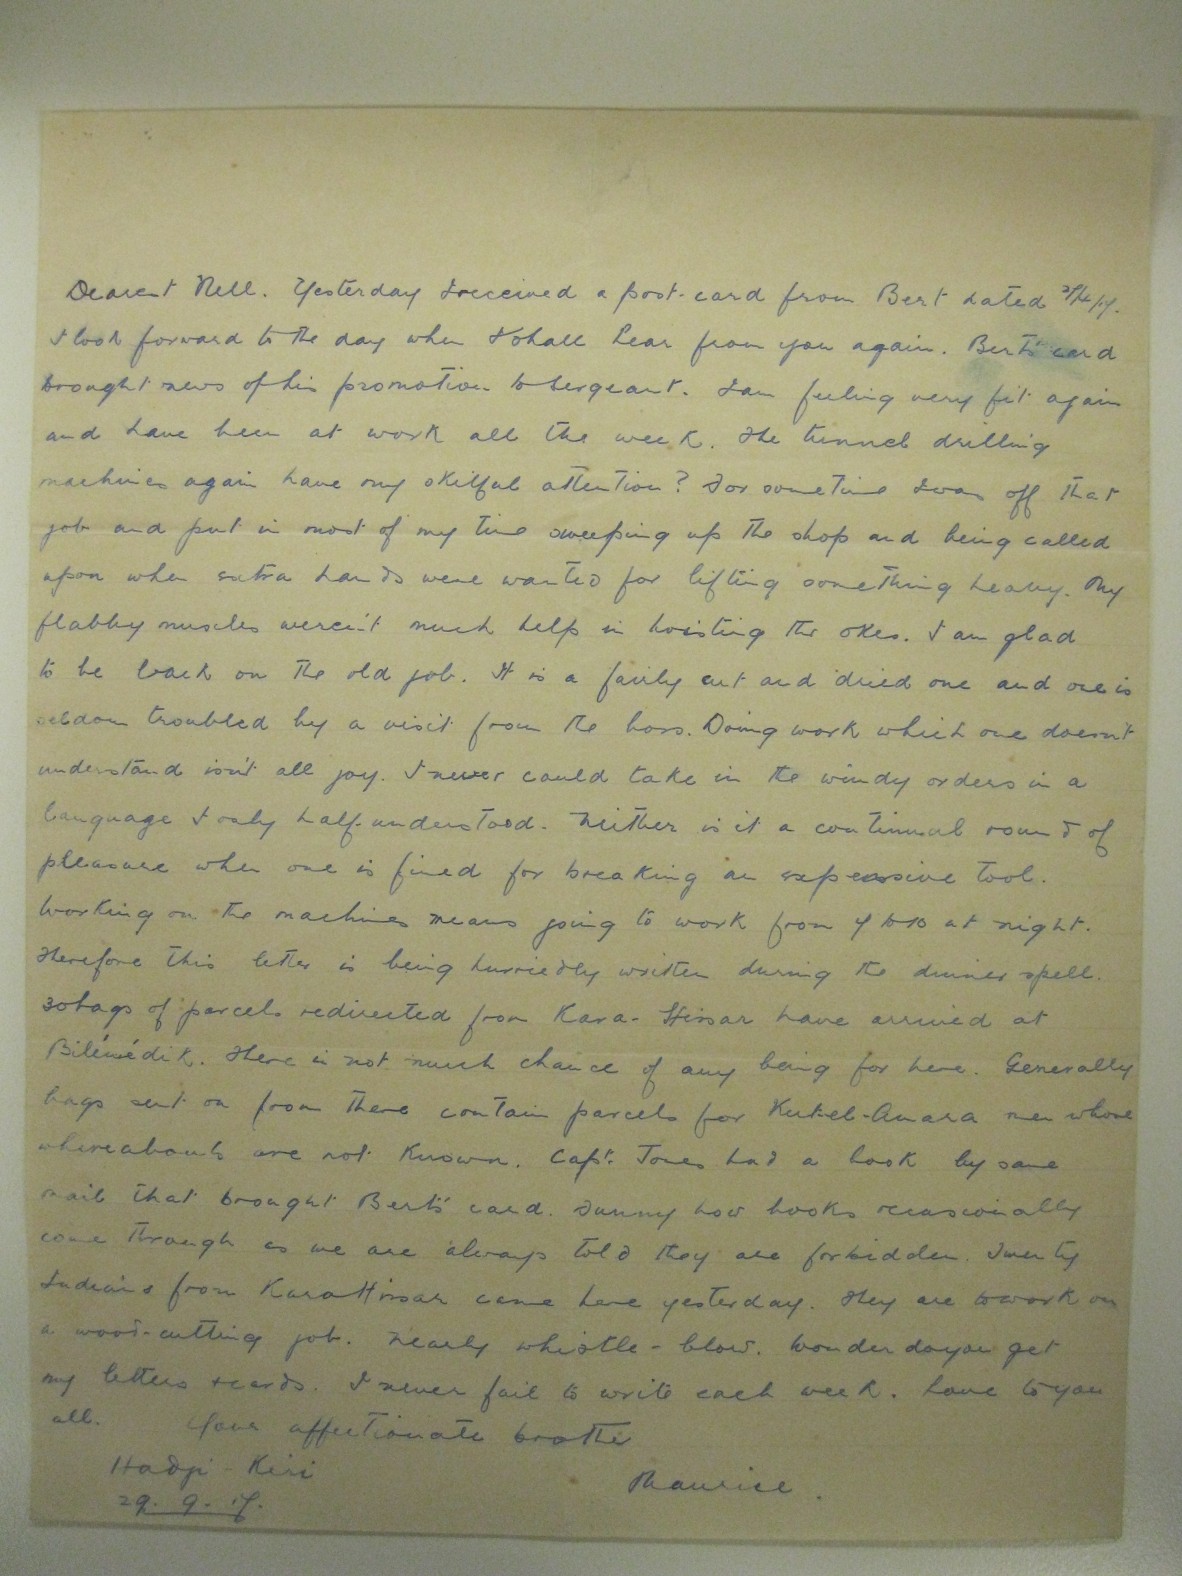 Dearest Nell. Yesterday I received a post-card from Bert dated
I look forward to the day when I shall hear from you again. Bert's card
brought news of his promotion to Sergeant. I am feeling very fit again
and have been at work all the week. The tunnel drilling
machines again have my skilful attention? For some time I was off that
job and put in most of my time sweeping up the shop and being called
upon when extra hands were wanted for lifting something heavy. My
flabby muscles weren't much help in hoisting the okes. I am glad
to be back on the old job. It is a fairly cut and dried one and one is
seldom troubled by a visit from the boss. Doing work which one doesn't
understand isn't all joy. I never could take in the windy orders in a
language I only half-understood. Neither is it a continual round of
pleasure when one is fined for breaking an expensive tool.
Working on the machines means going to work from 7 to 10 at night.
Therefore this letter is being hurriedly written during the dinner spell.
30 bags of parcels redirected from Kara-Hissar have arrived at
Bilémédik. There is not much chance of any being for here. Generally
bags sent on from there contain parcels for Kut-el-Amara men whose
whereabouts are not known. Capt. Jones had a book by same
mail that brought Bert's card. Funny how books occasionally
come through as we are always told they are forbidden. Twenty
Indians from Kara Hissar came here yesterday. They are to work on
a wood-cutting job. Nearly whistle-blow. Wonder do you get
my letters & cards. I never fail to write each week. Love to you
all. Your affectionate brother
Hadji-Kiri Maurice.
29.9.17.